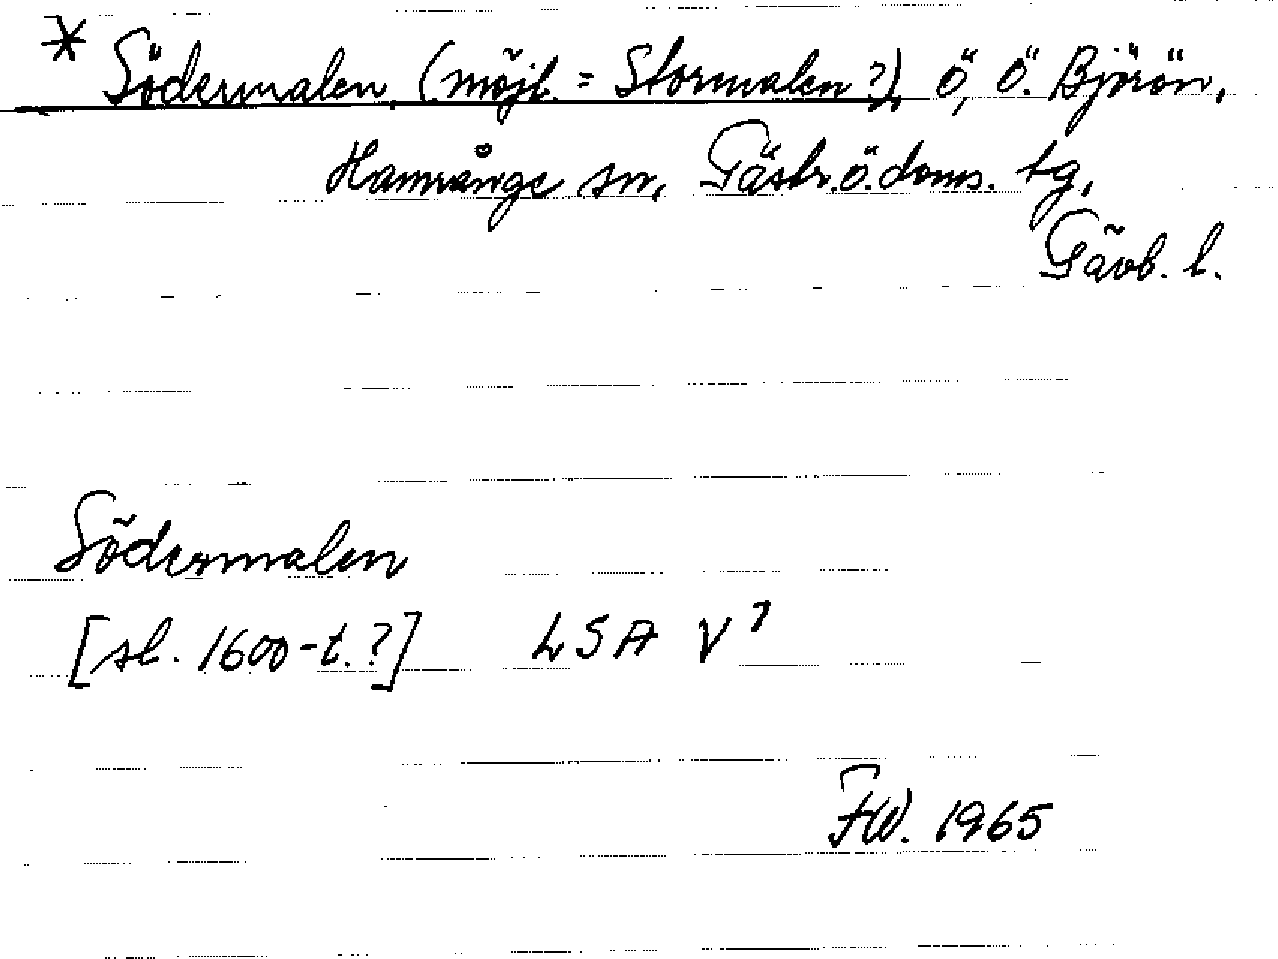 * Södermalen, (möjl. = Stormalen?), ö, Ö. Björön,
Hamrånge sn, Gästr. ö. doms. tg,
Gävb. l.
Södermalen
[sl. 1600-t.?] LSA V 7
FW. 1965